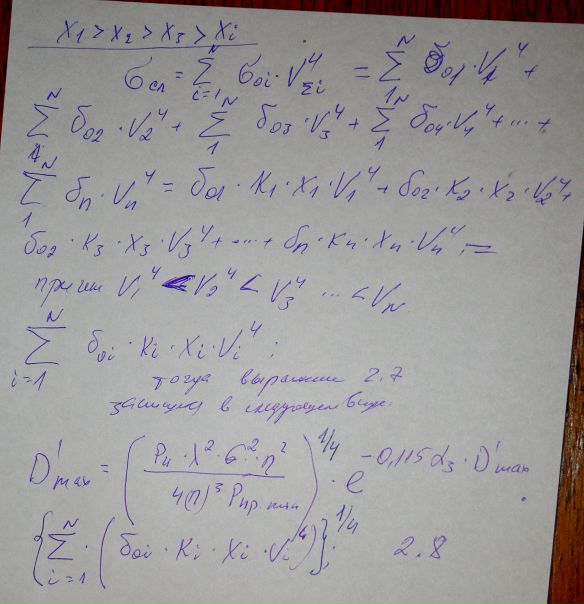 x1 > x2 > x3 > xi
σсл = ∑ i=1 N σoi · V∑i^4 = ∑ 1 N σ01 · V1^4 +
∑ 1 N σ02 · V2^4 + ∑ 1 N σ03 · V3^4 + ∑ 1 N σ04 · V4^4 + ... +
∑ 1 N σn · Vn^4 = σ01 · K1 · x1 · V1^4 + σ02 · K2 · x2 · V2^4 +
σ02 · K3 · x3 · V3^4 + ... + σn · Kn · xn · Vn^4, =
при чем V1^4 < V2^4 < V3^4 ... < VN
∑ i=1 N σoi · Ki · xi · Vi^4 ;
тогда выражение 2.7
запишем в следующем виде.
D'max = (Pu · λ^2 · G^2 · η^2 / 4(π)^3 Pпр.min)^1/4 · e^-0,115α3 · D'max .
{∑ i=1 N · (σoi · Ki · xi · Vi^4)}^1/4 ; 2.8